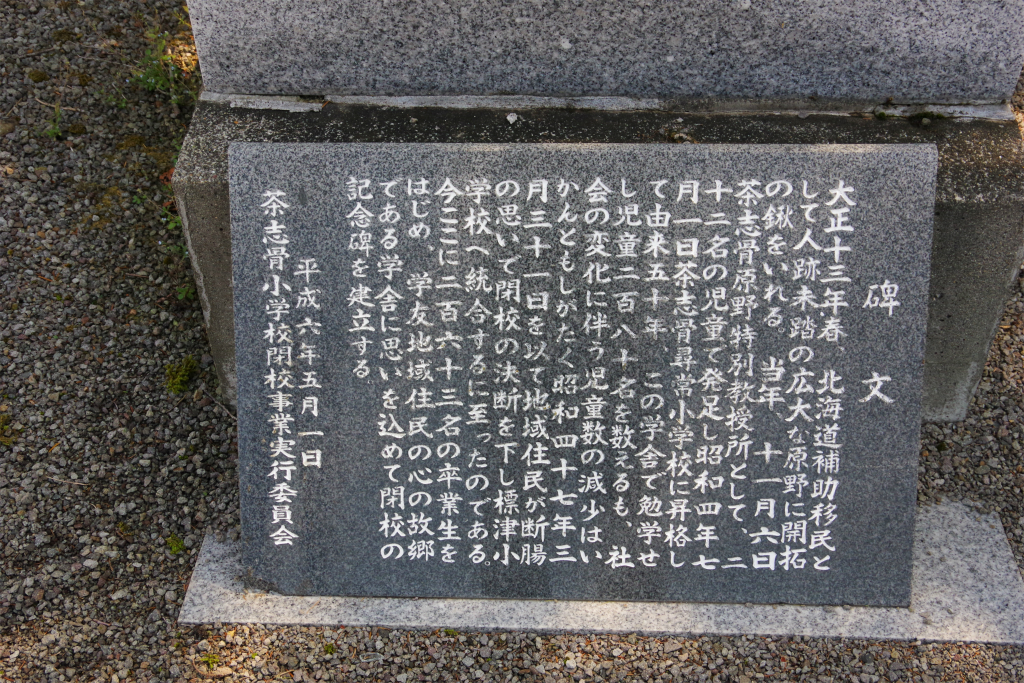 碑文
大正十三年春、北海道補助移民と
して人跡未踏の広大な原野に開拓
の鍬をいれる。当年、十一月六日
茶志骨原野特別教授所として、二
十二名の児童で発足し昭和四年七
月一日茶志骨尋常小学校に昇格し
て由来五十年、この学舎で勉学せ
し児童二百八十名を数えるも、社
会の変化に伴う児童数の減少はい
かんともしがたく昭和四十七年三
月三十一日を以て地域住民が断腸
の思いで閉校の決断を下し標津小
学校へ統合するに至ったのである。
今ここに二百六十三名の卒業生を
はじめ、学友地域住民の心の故郷
である学舎に思いを込めて閉校の
記念碑を建立する。
平成六年五月一日
茶志骨小学校閉校事業実行委員会